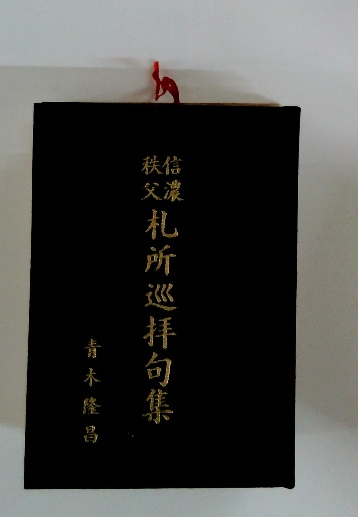 信濃
秩父
札所巡拝句集
青木隆昌